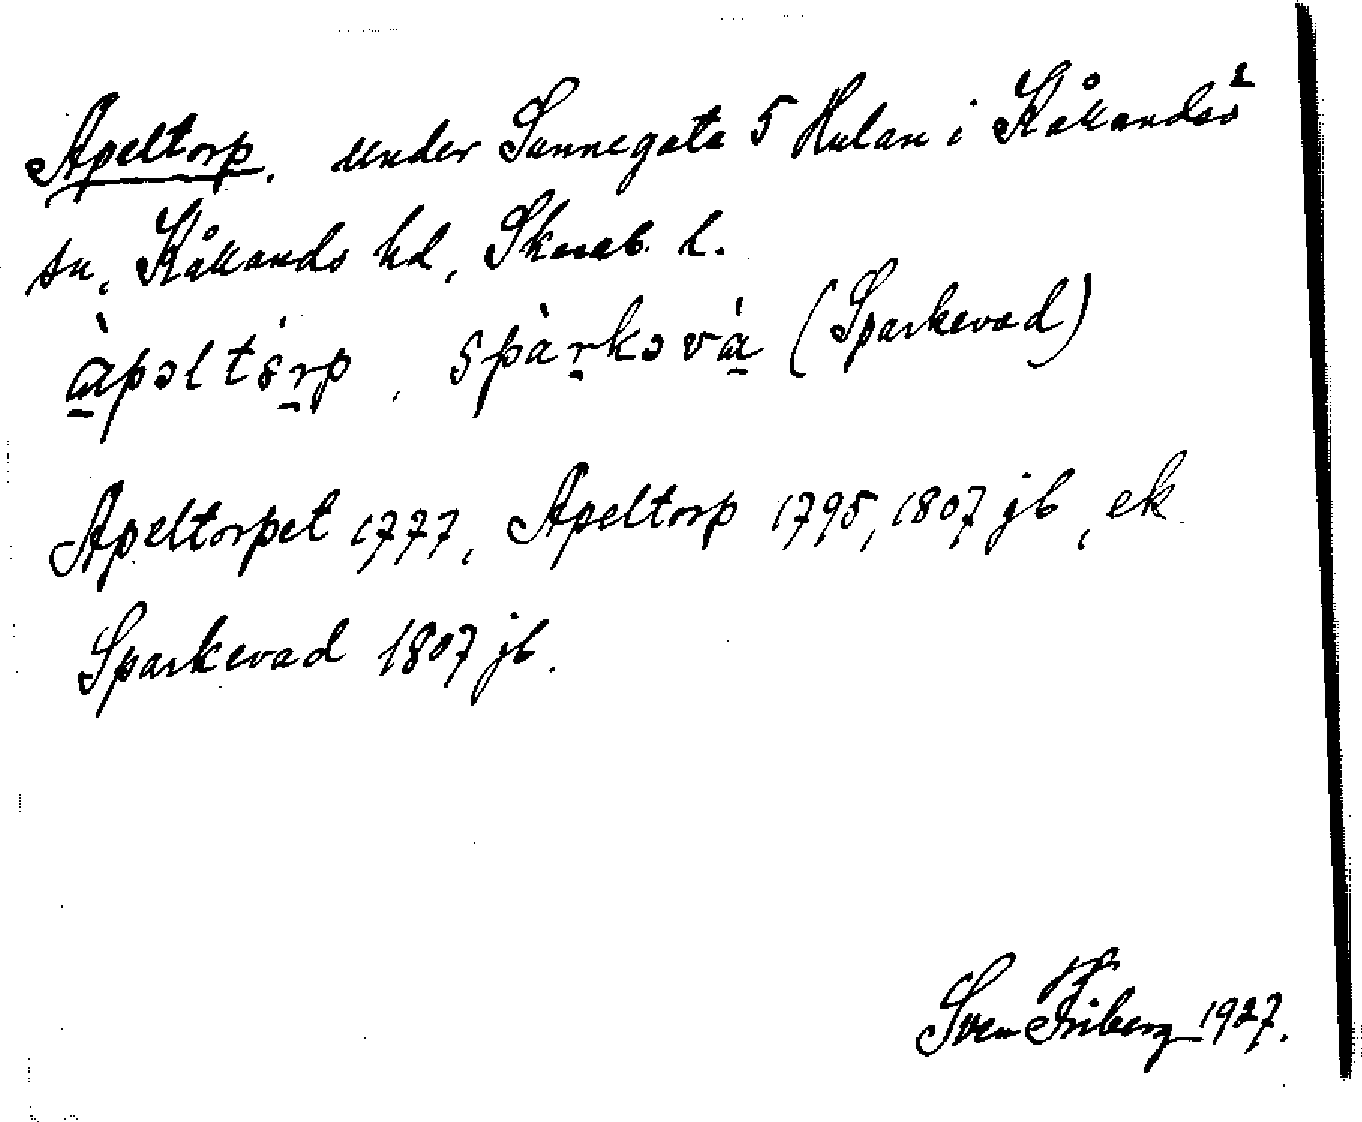 Apeltorp. under Sannegata 5 Hulan i Kållandsö
sn, Kållands hd, Skarab. l.
àpəltórp, spàrkəvá (Sparkevad)
Apeltorpet 1777, Apeltorp 1795, 1807 jb, ek
Sparkevad 1807 jb.
Sven Friberg 1927.